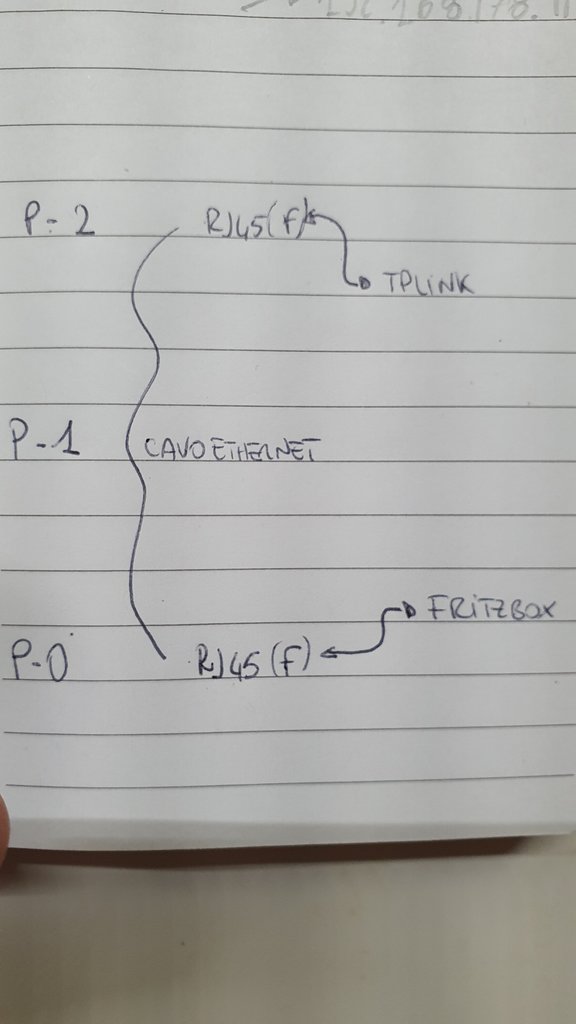 P-2 RJ45(F)
TPLINK
P-1 CAVO ETHERNET
FRITZBOX
P-0 RJ45(F)